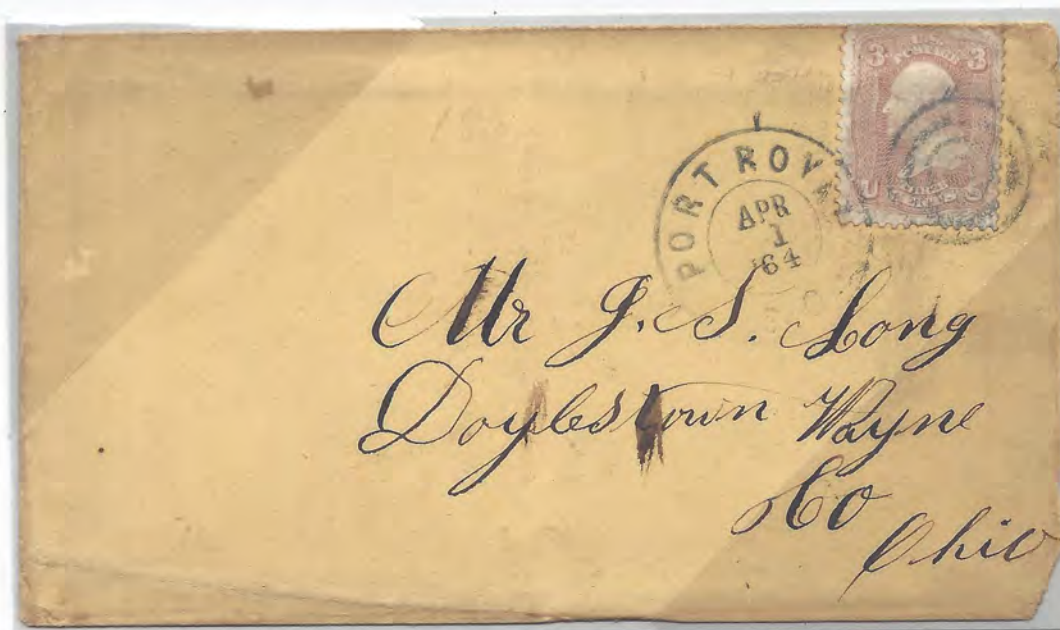 3 3
U S
PORT ROY
APR
1
'64
Mr J. S. Long
Doylestown Wayne
Co
Ohio